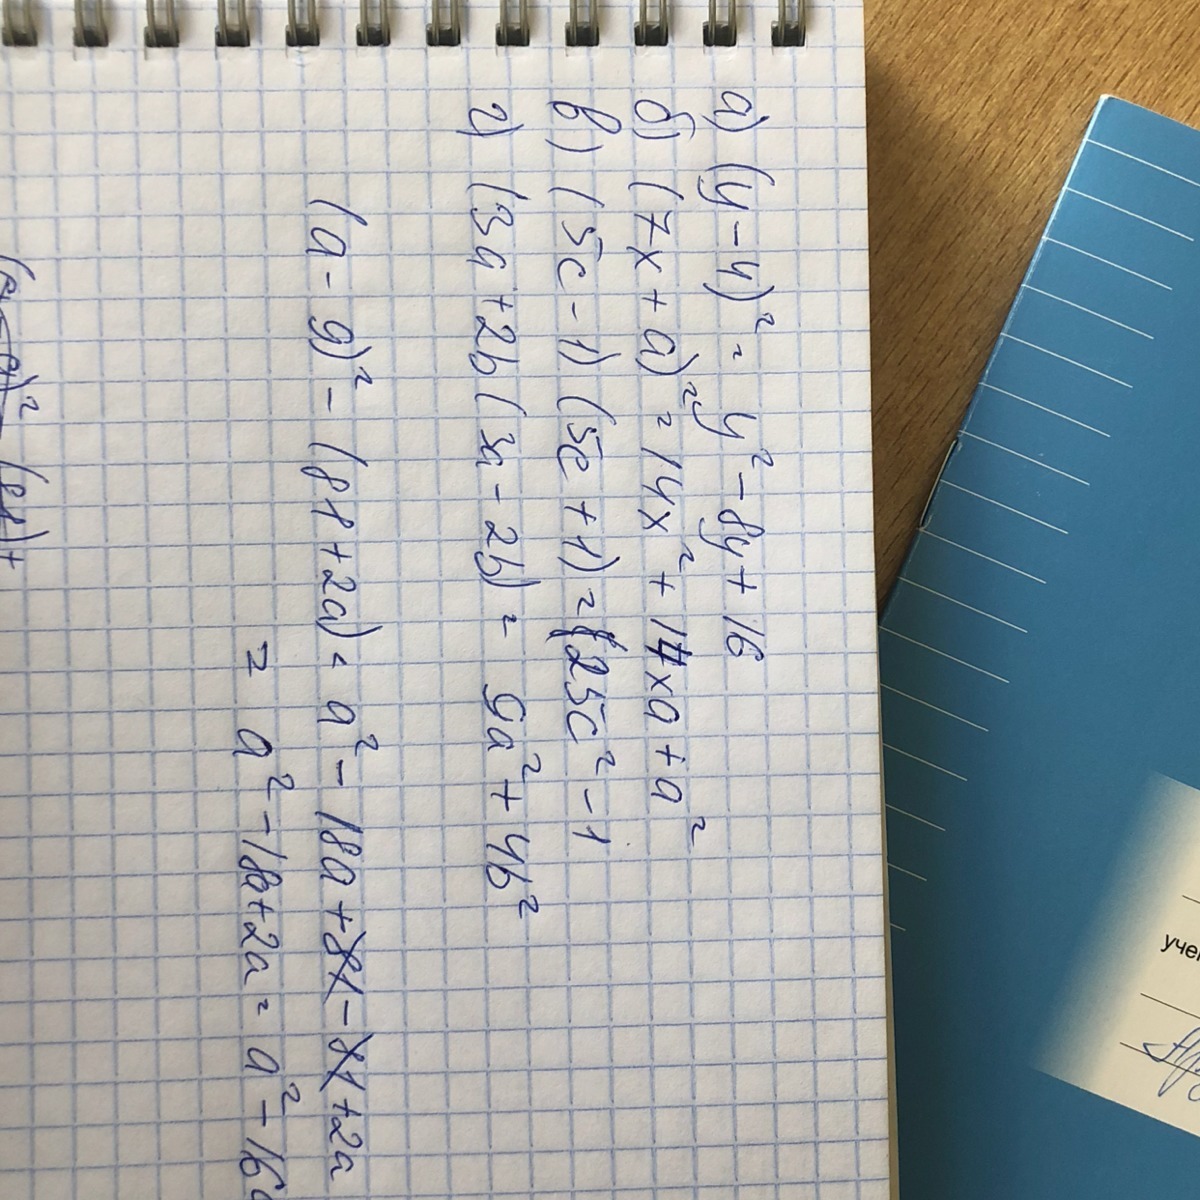 а) (y-4)² = y² - 8y + 16
б) (7x + a)² = 14x² + 14xa + a²
в) (5c - 1) (5c + 1) = 25c² - 1
г) (3a + 2b (3a - 2b) = 9a² + 4b²
(a - 9)² - (81 + 2a) = a² - 18a + 81 - 81 + 2a
= a² - 18a + 2a = a² - 16a